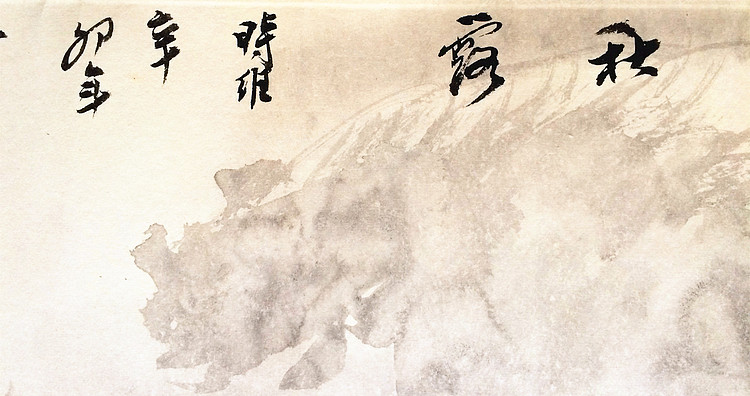 秋
露
時維
辛
卯年